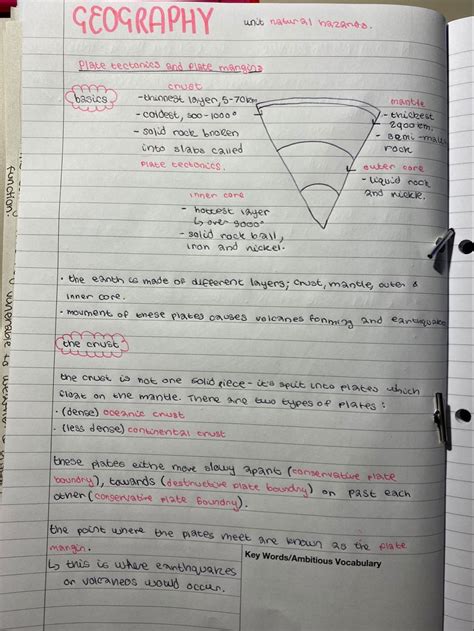 GEOGRAPHY
unit natural hazards.
Plate tectonics and plate margins
basics
crust
- thinnest layer, 5-70km
- coldest, 500-1000°
- solid rock broken
into slabs called
plate tectonics.
mantle
- thickest
2900 km.
- semi-
rock
outer core
- liquid rock
and nickle.
inner core
- hottest layer
↳ over 9000°
- solid rock ball,
iron and nickel.
• the earth is made of different layers; crust, mantle, outer &
inner core.
• movment of these plates causes volcanes forming and earthquake
the crust
the crust is not one solid piece - it's split into plates which
float on the mantle. There are two types of plates:
• (dense) oceanic crust
• (less dense) continental crust
these plates eithe move slowy apart (conservative plate
boundry), towards (destructive plate boundry) or past each
other (conservative plate boundry).
the point where the plates meet are known as the plate
margin.
↳ this is where earthquakes
or volcaneos would occur.
Key Words/Ambitious Vocabulary
function: